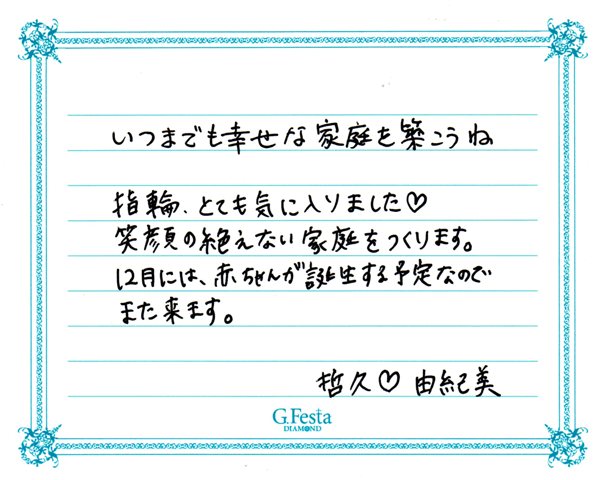 いつまでも幸せな家庭を築こうね
指輪、とても気に入りました♡
笑顔の絶えない家庭をつくります。
12月には、赤ちゃんが誕生する予定なので
また来ます。
哲久♡由紀美
G.Festa
DIAMOND